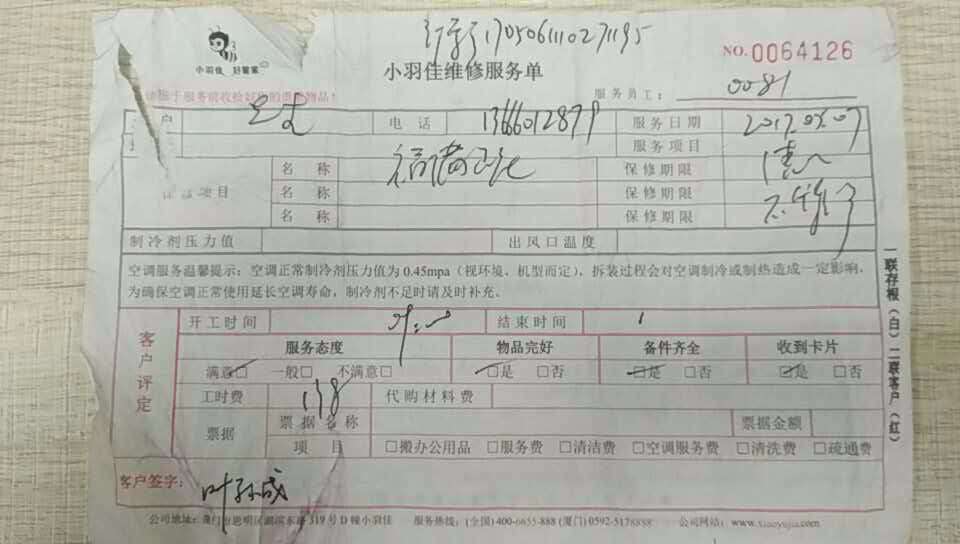 订单号170506110271195
小羽佳 好管家
小羽佳维修服务单
NO.0064126
服务员工： 0081
电话 13666012879 服务日期 2017.05.07
服务项目
名称 保修期限
项目 名称 保修期限
名称 保修期限
制冷剂压力值 出风口温度
空调服务温馨提示：空调正常制冷剂压力值为 0.45mpa（视环境、机型而定），拆装过程会对空调制冷或制热造成一定影响，
为确保空调正常使用延长空调寿命，制冷剂不足时请及时补充。
一联存根（白）二联客户（红）
客户评定
开工时间 结束时间
服务态度 物品完好 备件齐全 收到卡片
满意□ 一般□ 不满意□ □是 □否 □是 □否 □是 □否
工时费 138 代购材料费
票据 票据名称 票据金额
项目 □搬办公用品 □服务费 □清洁费 □空调服务费 □清洗费 □疏通费
客户签字： 叶孙成
公司地址：厦门市思明区湖滨东路 319 号 D 幢小羽佳 服务热线：(全国) 400-6655-888 (厦门) 0592-5178888 公司网站：www.xiaoyujia.com